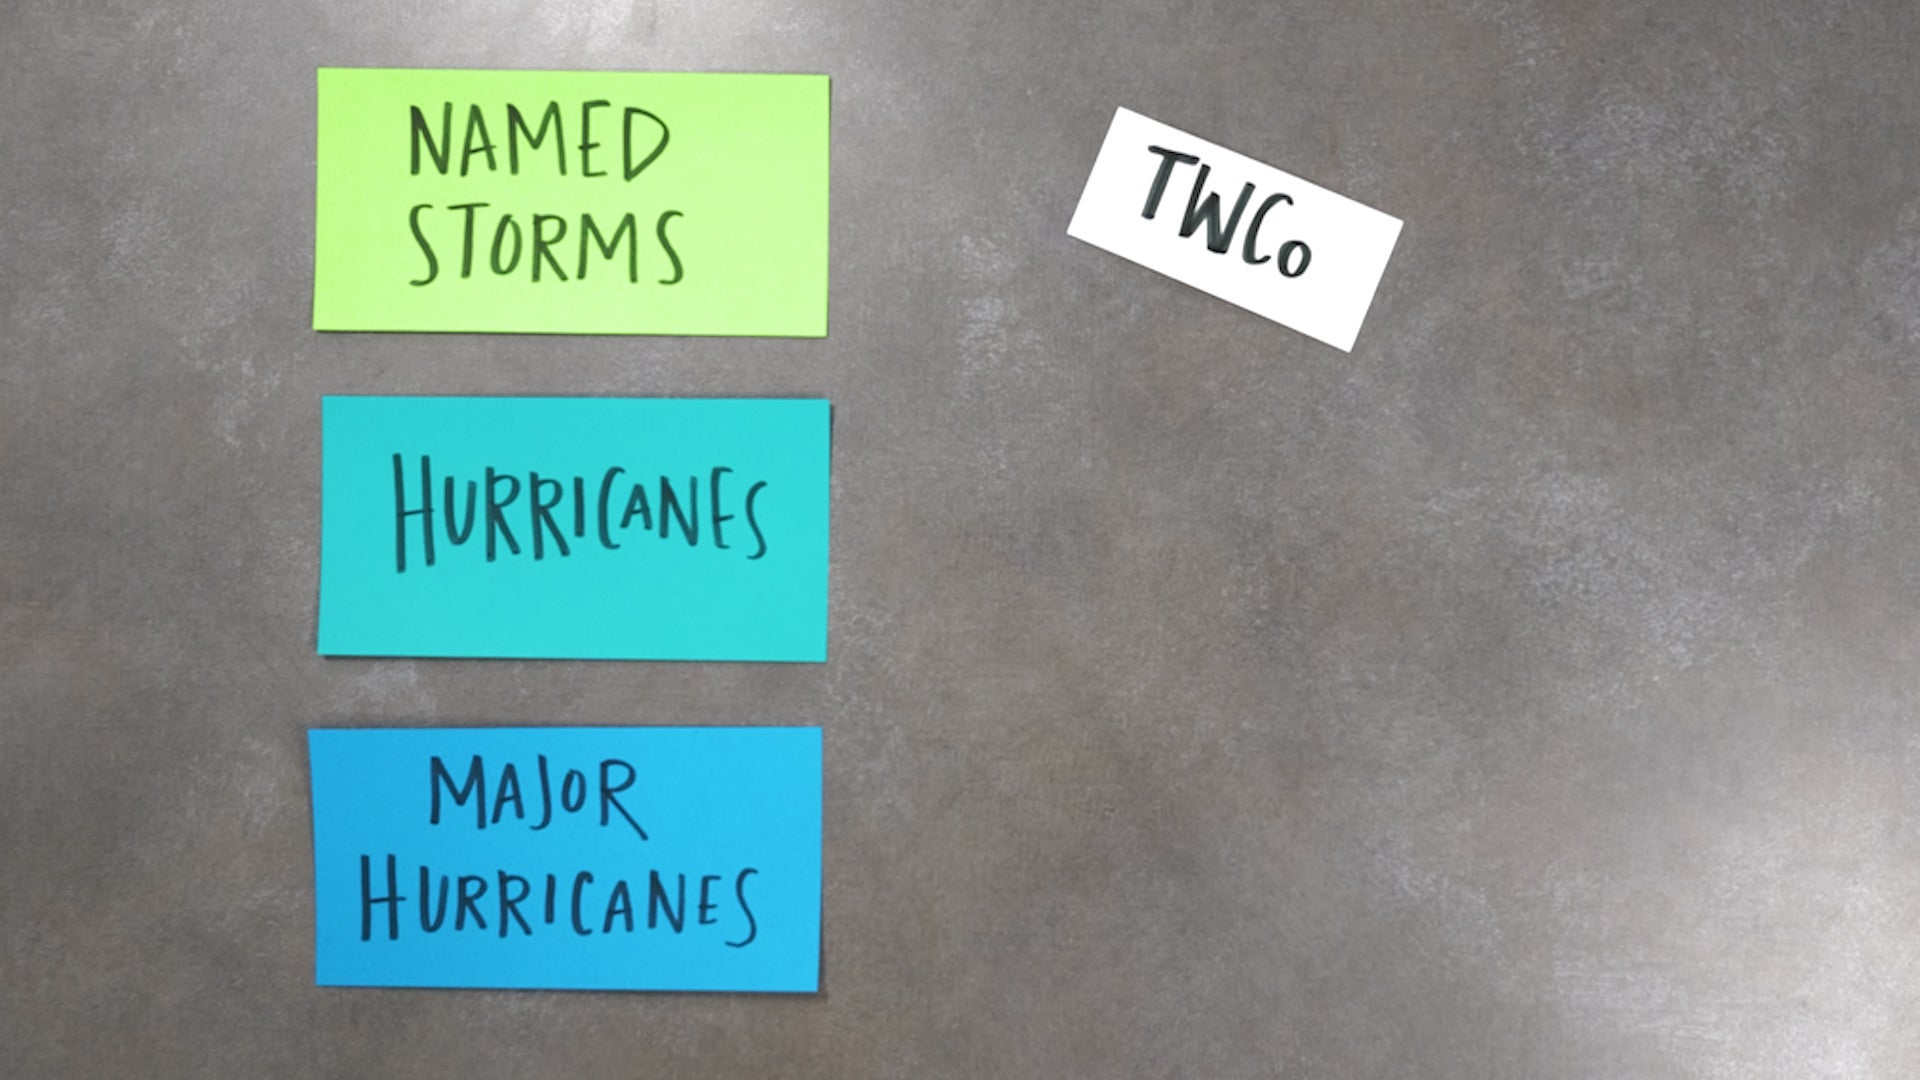 NAMED
STORMS
TWCo
HURRICANES
MAJOR
HURRICANES